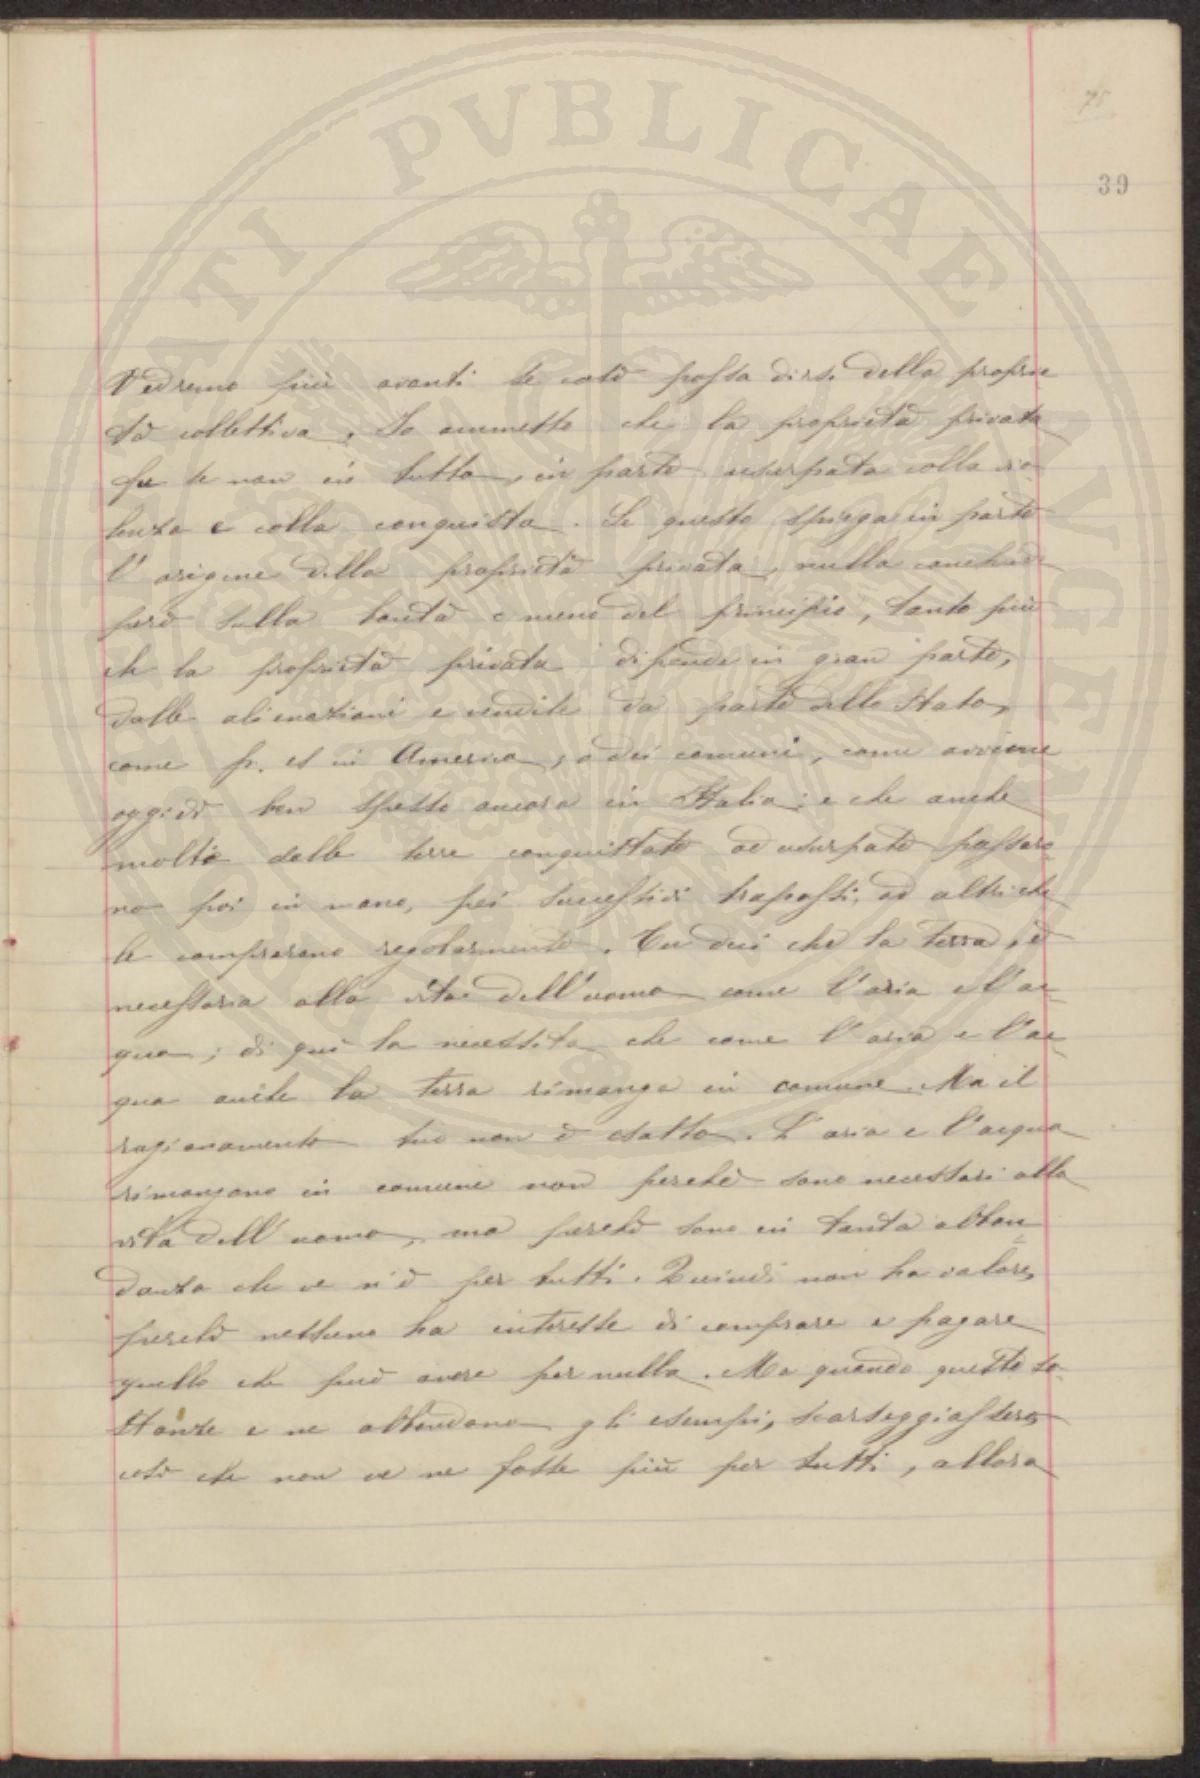 75
39
Vedremo più avanti se così possa dirsi della proprie
tà collettiva. Io ammetto che la proprietà privata
fu se non in tutto, in parte usurpata colla vio
lenza e colla conquista. Se questo spiega in parte
l'origine della proprietà privata, nulla conchiude
però sulla bontà o meno del principio, tanto più
che la proprietà privata dipende in gran parte,
dalle alienazioni e vendite da parte dello Stato,
come p. es in America, o dei comuni, come avviene
oggidì ben spesso ancora in Italia; e che anche
molte delle terre conquistate od usurpate passaro
no poi in mano, pei successivi trapassi, ad altri che
le comprarono regolarmente. Tu dici che la terra è
necessaria alla vita dell'uomo come l'aria e l'ac-
qua; di qui la necessità che come l'aria e l'ac-
qua anche la terra rimanga in comune. Ma il
ragionamento tuo non è esatto. L'aria e l'acqua
rimangono in comune non perchè sono necessari alla
vita dell'uomo, ma perchè sono in tanta abbon
danza che ve n'è per tutti. Quindi non ha valore,
perchè nessuno ha interesse di comprare e pagare
quello che può avere per nulla. Ma quando queste so
stanze e ne abbondano gli esempi, scarseggiassero
così che non ve ne fosse più per tutti, allora